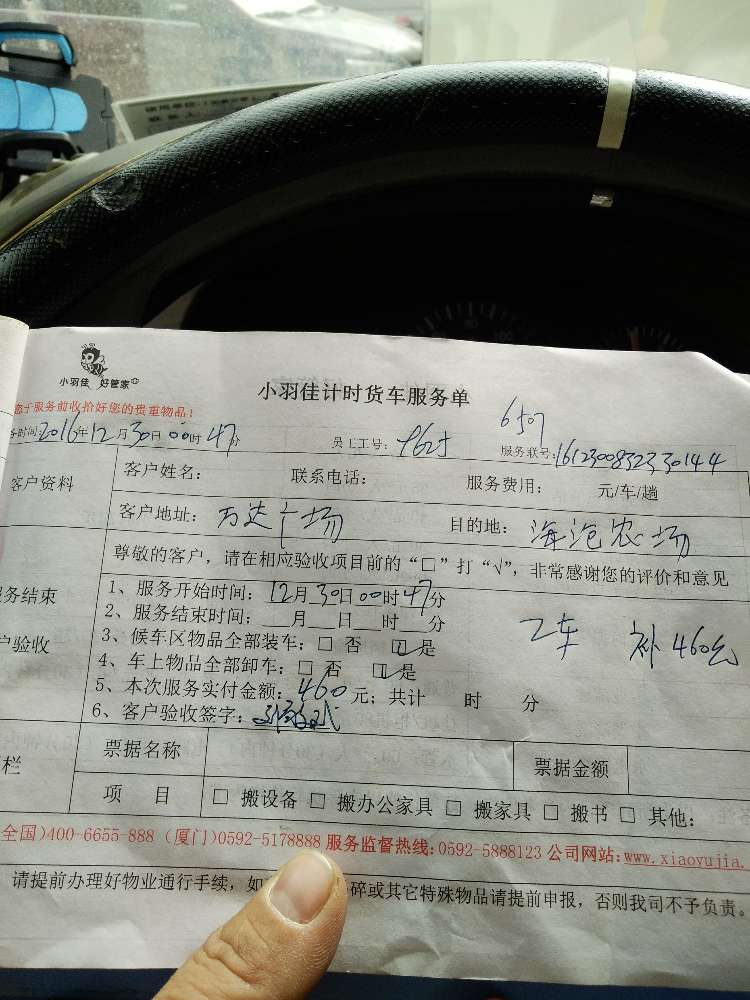 小羽佳 好管家
小羽佳计时货车服务单
您于服务前收拾好您的贵重物品！
6507
务时间2016年12月30日00时47分 员工工号：9625 服务联号：1612300832330144
客户资料 客户姓名： 联系电话： 服务费用： 元/车/趟
客户地址：万达广场 目的地：海沧农场
尊敬的客户，请在相应验收项目前的“□”打“√”，非常感谢您的评价和意见
服务结束
户验收
1、服务开始时间：12月30日00时47分
2、服务结束时间：__月__日__时__分
3、候车区物品全部装车：□ 否 ☑ 是
4、车上物品全部卸车：□ 否 ☑ 是
5、本次服务实付金额：460元；共计 时 分
6、客户验收签字：
2车 补460元
栏 票据名称 票据金额
项 目 □ 搬设备 □ 搬办公家具 □ 搬家具 □ 搬书 □ 其他：
全国)400-6655-888 (厦门)0592-5178888 服务监督热线:0592-5888123 公司网站:www.xiaoyujia.
请提前办理好物业通行手续，如 碎或其它特殊物品请提前申报，否则我司不予负责。